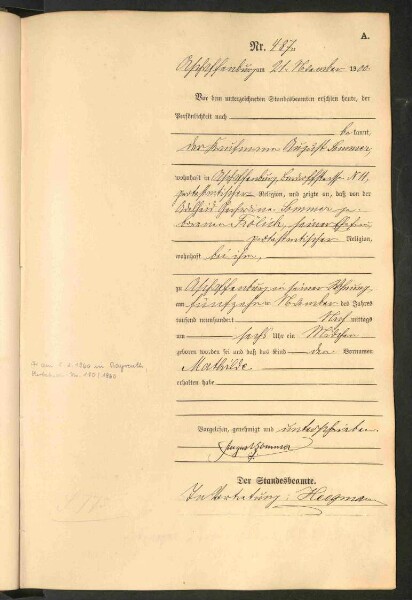 A.
Nr. 487.
Aschaffenburg am 21. November 1900.
Vor dem unterzeichneten Standesbeamten erschien heute, der
Persönlichkeit nach
bekannt,
der Kaufmann August Sommer,
wohnhaft in Aschaffenburg N 11,
protestantischer Religion, und zeigte an, daß von der
Sommer ge-
borenen seiner Ehefrau
protestantischer Religion,
wohnhaft bei ihm,
zu Aschaffenburg in seiner Wohnung
am fünfzehn November des Jahres
tausend neunhundert Nachmittags
um sechs Uhr ein Mädchen
geboren worden sei und daß das Kind den Vornamen
Mathilde
erhalten habe
Vorgelesen, genehmigt und unterschrieben.
August Sommer
Der Standesbeamte.
In Vertretung:
am 1960 in Bayreuth
1960